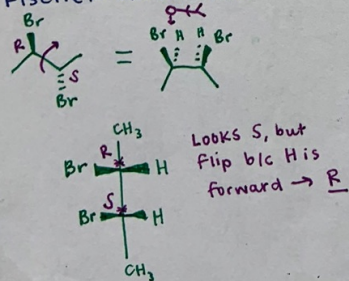 Br
R
S
Br
=
Br H H Br
CH3
R
Br H
S
Br H
CH3
Looks S, but
Flip b/c H is
forward → R